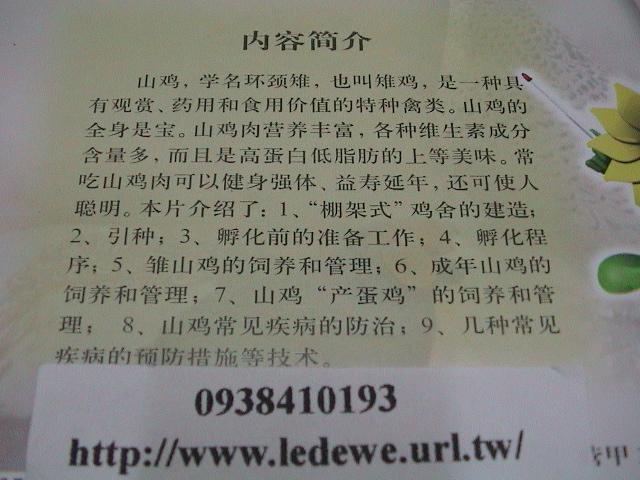 内容简介
山鸡，学名环颈雉，也叫雉鸡，是一种具
有观赏、药用和食用价值的特种禽类。山鸡的
全身是宝。山鸡肉营养丰富，各种维生素成分
含量多，而且是高蛋白低脂肪的上等美味。常
吃山鸡肉可以健身强体、益寿延年，还可使人
聪明。本片介绍了：1、“棚架式”鸡舍的建造；
2、引种；3、孵化前的准备工作；4、孵化程
序；5、雏山鸡的饲养和管理；6、成年山鸡的
饲养和管理；7、山鸡“产蛋鸡”的饲养和管
理； 8、山鸡常见疾病的防治；9、几种常见
疾病的预防措施等技术。
0938410193
http://www.ledewe.url.tw/